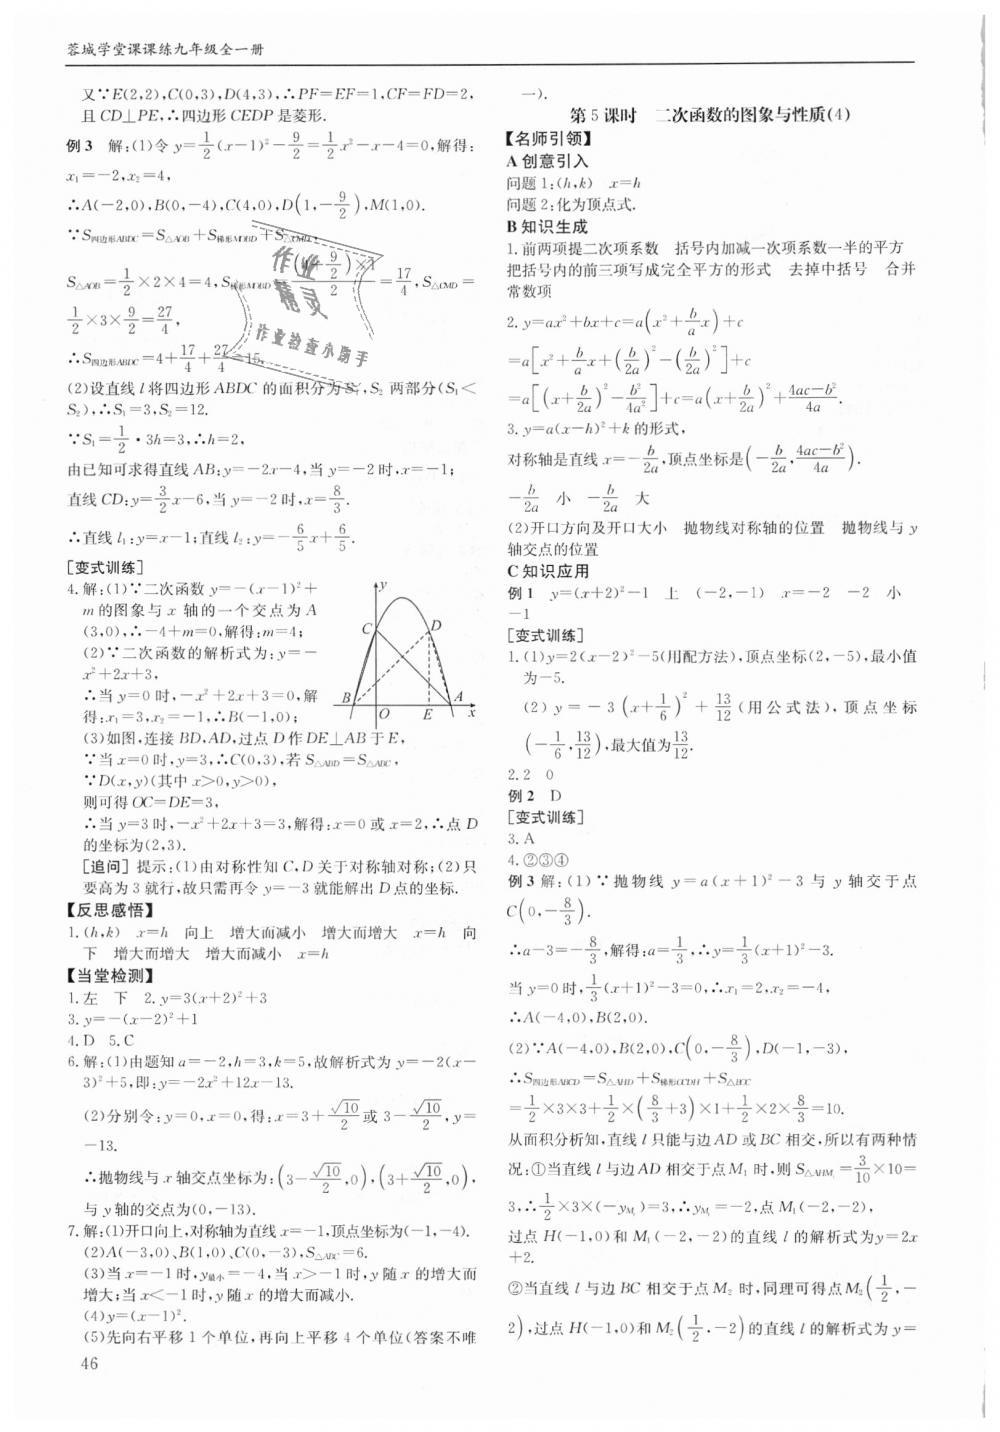 蓉城学堂课课练九年级全一册
又∵E(2,2),C(0,3),D(4,3),∴PF=EF=1,CF=FD=2,
且CD⊥PE,∴四边形CEDP是菱形.
例3 解:(1)令y=1/2(x-1)²-9/2=1/2x²-x-4=0,解得:
x₁=-2,x₂=4,
∴A(-2,0),B(0,-4),C(4,0),D(1,-9/2),M(1,0).
∵S四边形ABDC=S△AOB+S梯形MOBD+S△CMD,
S△AOB=1/2×2×4=4,S梯形MOBD= 9/2)×1/2=17/4,S△CMD=
1/2×3×9/2=27/4,
∴S四边形ABDC=4+17/4+27/4=15.
(2)设直线l将四边形ABDC的面积分为S₁,S₂两部分(S₁<
S₂),∴S₁=3,S₂=12.
∵S₁=1/2·3h=3,∴h=2,
由已知可求得直线AB:y=-2x-4,当y=-2时,x=-1;
直线CD:y=3/2x-6,当y=-2时,x=8/3.
∴直线l₁:y=x-1;直线l₂:y=-6/5x+6/5.
[变式训练]
4.解:(1)∵二次函数y=-(x-1)²+
m的图象与x轴的一个交点为A
(3,0),∴-4+m=0,解得:m=4;
(2)∵二次函数的解析式为:y=-
x²+2x+3,
∴当y=0时,-x²+2x+3=0,解
得:x₁=3,x₂=-1,∴B(-1,0);
(3)如图,连接BD,AD,过点D作DE⊥AB于E,
∵当x=0时,y=3,∴C(0,3),若S△ABD=S△ABC,
∵D(x,y)(其中x>0,y>0),
则可得OC=DE=3,
∴当y=3时,-x²+2x+3=3,解得:x=0或x=2,∴点D
的坐标为(2,3).
y
C
D
B
O
E
A
x
[追问]提示:(1)由对称性知C,D关于对称轴对称;(2)只
要高为3就行,故只需再令y=-3就能解出D点的坐标.
【反思感悟】
1.(h,k) x=h 向上 增大而减小 增大而增大 x=h 向
下 增大而增大 增大而减小 x=h
【当堂检测】
1.左 下 2.y=3(x+2)²+3
3.y=-(x-2)²+1
4.D 5.C
6.解:(1)由题知a=-2,h=3,k=5,故解析式为y=-2(x-
3)²+5,即:y=-2x²+12x-13.
(2)分别令:y=0,x=0,得:x=3+√10/2或3-√10/2,y=
-13.
∴抛物线与x轴交点坐标为:(3-√10/2,0),(3+√10/2,0),
与y轴的交点为(0,-13).
7.解:(1)开口向上,对称轴为直线x=-1,顶点坐标为(-1,-4).
(2)A(-3,0)、B(1,0)、C(0,-3),S△ABC=6.
(3)当x=-1时,y最小=-4,当x>-1时,y随x的增大而
增大;当x<-1时,y随x的增大而减小.
(4)y=(x-1)².
(5)先向右平移1个单位,再向上平移4个单位(答案不唯
46
一).
第5课时 二次函数的图象与性质(4)
【名师引领】
A创意引入
问题1:(h,k) x=h
问题2:化为顶点式.
B知识生成
1.前两项提二次项系数 括号内加减一次项系数一半的平方
把括号内的前三项写成完全平方的形式 去掉中括号 合并
常数项
2.y=ax²+bx+c=a(x²+b/a x)+c
=a[x²+b/a x+(b/2a)²-(b/2a)²]+c
=a[(x+b/2a)²-b²/4a²]+c=a(x+b/2a)²+4ac-b²/4a.
3.y=a(x-h)²+k的形式,
对称轴是直线x=-b/2a,顶点坐标是(-b/2a,4ac-b²/4a).
-b/2a 小 -b/2a 大
(2)开口方向及开口大小 抛物线对称轴的位置 抛物线与y
轴交点的位置
C知识应用
例1 y=(x+2)²-1 上 (-2,-1) x=-2 -2 小
-1
[变式训练]
1.(1)y=2(x-2)²-5(用配方法),顶点坐标(2,-5),最小值
为-5.
(2)y=-3(x+1/6)²+13/12(用公式法),顶点坐标
(-1/6,13/12),最大值为13/12.
2.2 0
例2 D
[变式训练]
3.A
4.②③④
例3 解:(1)∵抛物线y=a(x+1)²-3与y轴交于点
C(0,-8/3).
∴a-3=-8/3,解得:a=1/3,∴y=1/3(x+1)²-3.
当y=0时,1/3(x+1)²-3=0,∴x₁=2,x₂=-4,
∴A(-4,0),B(2,0).
(2)∵A(-4,0),B(2,0),C(0,-8/3),D(-1,-3),
∴S四边形ABCD=S△AHD+S梯形OCDH+S△BOC
=1/2×3×3+1/2×(8/3+3)×1+1/2×2×8/3=10.
从面积分析知,直线l只能与边AD或BC相交,所以有两种情
况:①当直线l与边AD相交于点M₁时,则S△AHM₁=3/10×10=
3,∴1/2×3×(-yM₁)=3,∴yM₁=-2,点M₁(-2,-2),
过点H(-1,0)和M₁(-2,-2)的直线l的解析式为y=2x
+2.
②当直线l与边BC相交于点M₂时,同理可得点M₂(1/2,-
2),过点H(-1,0)和M₂(1/2,-2)的直线l的解析式为y=
作业
精灵
作业检查小助手